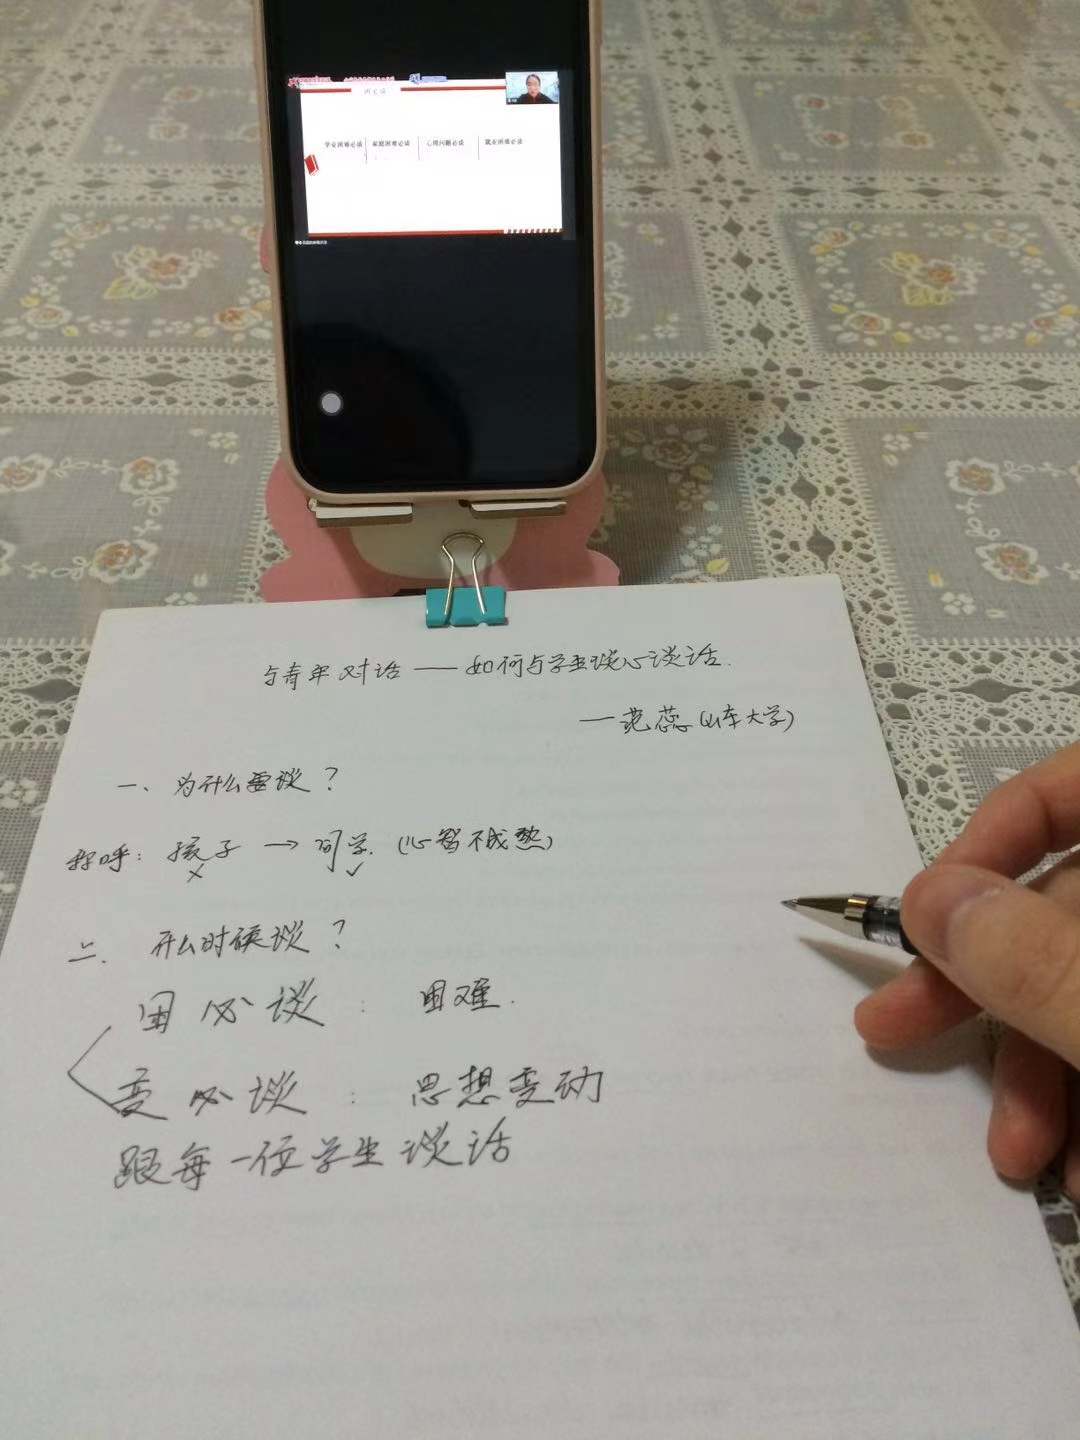 困必谈
学业困难必谈 家庭困难必谈 心理问题必谈 就业困难必谈
与青年对话——如何与学生谈心谈话.
——范蕊(山东大学)
一、为什么要谈?
称呼: 孩子 → 同学. (心智不成熟)
× ✓
二. 什么时候谈?
困必谈: 困难.
变必谈: 思想变动
跟每一位学生谈话